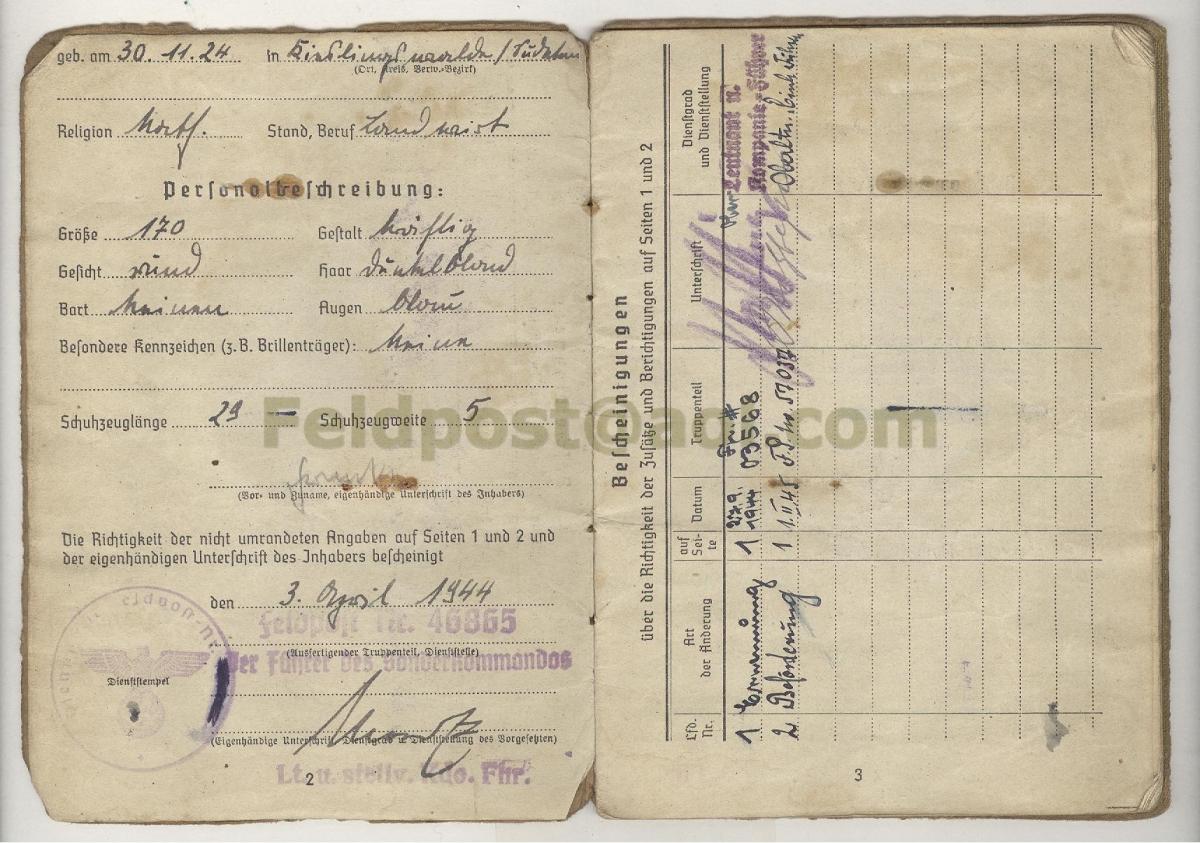 geb. am 30. 11. 24 in Kieslingswalde / Sudeten
(Ort, Kreis, Verw.-Bezirk)
Religion Kath. Stand, Beruf Landwirt
Personalbeschreibung:
Größe 170 Gestalt kräftig
Gesicht rund Haar dunkelblond
Bart keinen Augen blau
Besondere Kennzeichen (z.B. Brillenträger): keine
Schuhzeuglänge 29 — Schuhzeugweite 5
(Vor- und Zuname, eigenhändige Unterschrift des Inhabers)
Die Richtigkeit der nicht umrandeten Angaben auf Seiten 1 und 2 und
der eigenhändigen Unterschrift des Inhabers bescheinigt
den 3. April 1944
Feldpost Nr. 46865
(Ausfertigender Truppenteil, Dienststelle)
Der Führer des Sonderkommandos
Dienststempel
(Eigenhändige Unterschrift, Dienstgrad u. Dienststellung des Vorgesetzten)
Lt. u. stellv. Kdo. Fhr.
2
Feldpost@aol.com
Bescheinigungen
über die Richtigkeit der Zusätze und Berichtigungen auf Seiten 1 und 2
Lfd. Nr. Art der Änderung auf Seite Datum Truppenteil Unterschrift Dienstgrad und Dienststellung
1 Ernennung 1 1944 03568 Leutnant u. Kompanie-Führer
2 Beförderung 1 1.II.45 F.P. Nr. 57037
3